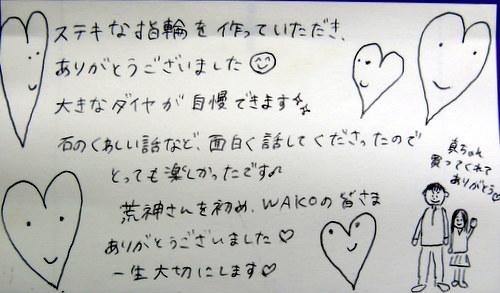 ステキな指輪を作っていただき、
ありがとうございました
大きなダイヤが自慢できます
石のくわしい話など、面白く話してくださったので
とっても楽しかったです♪
荒神さんを初め、WAKOの皆さま
ありがとうございました♡
一生大切にします♡
真ちゃん
買ってくれて
ありがとう♡